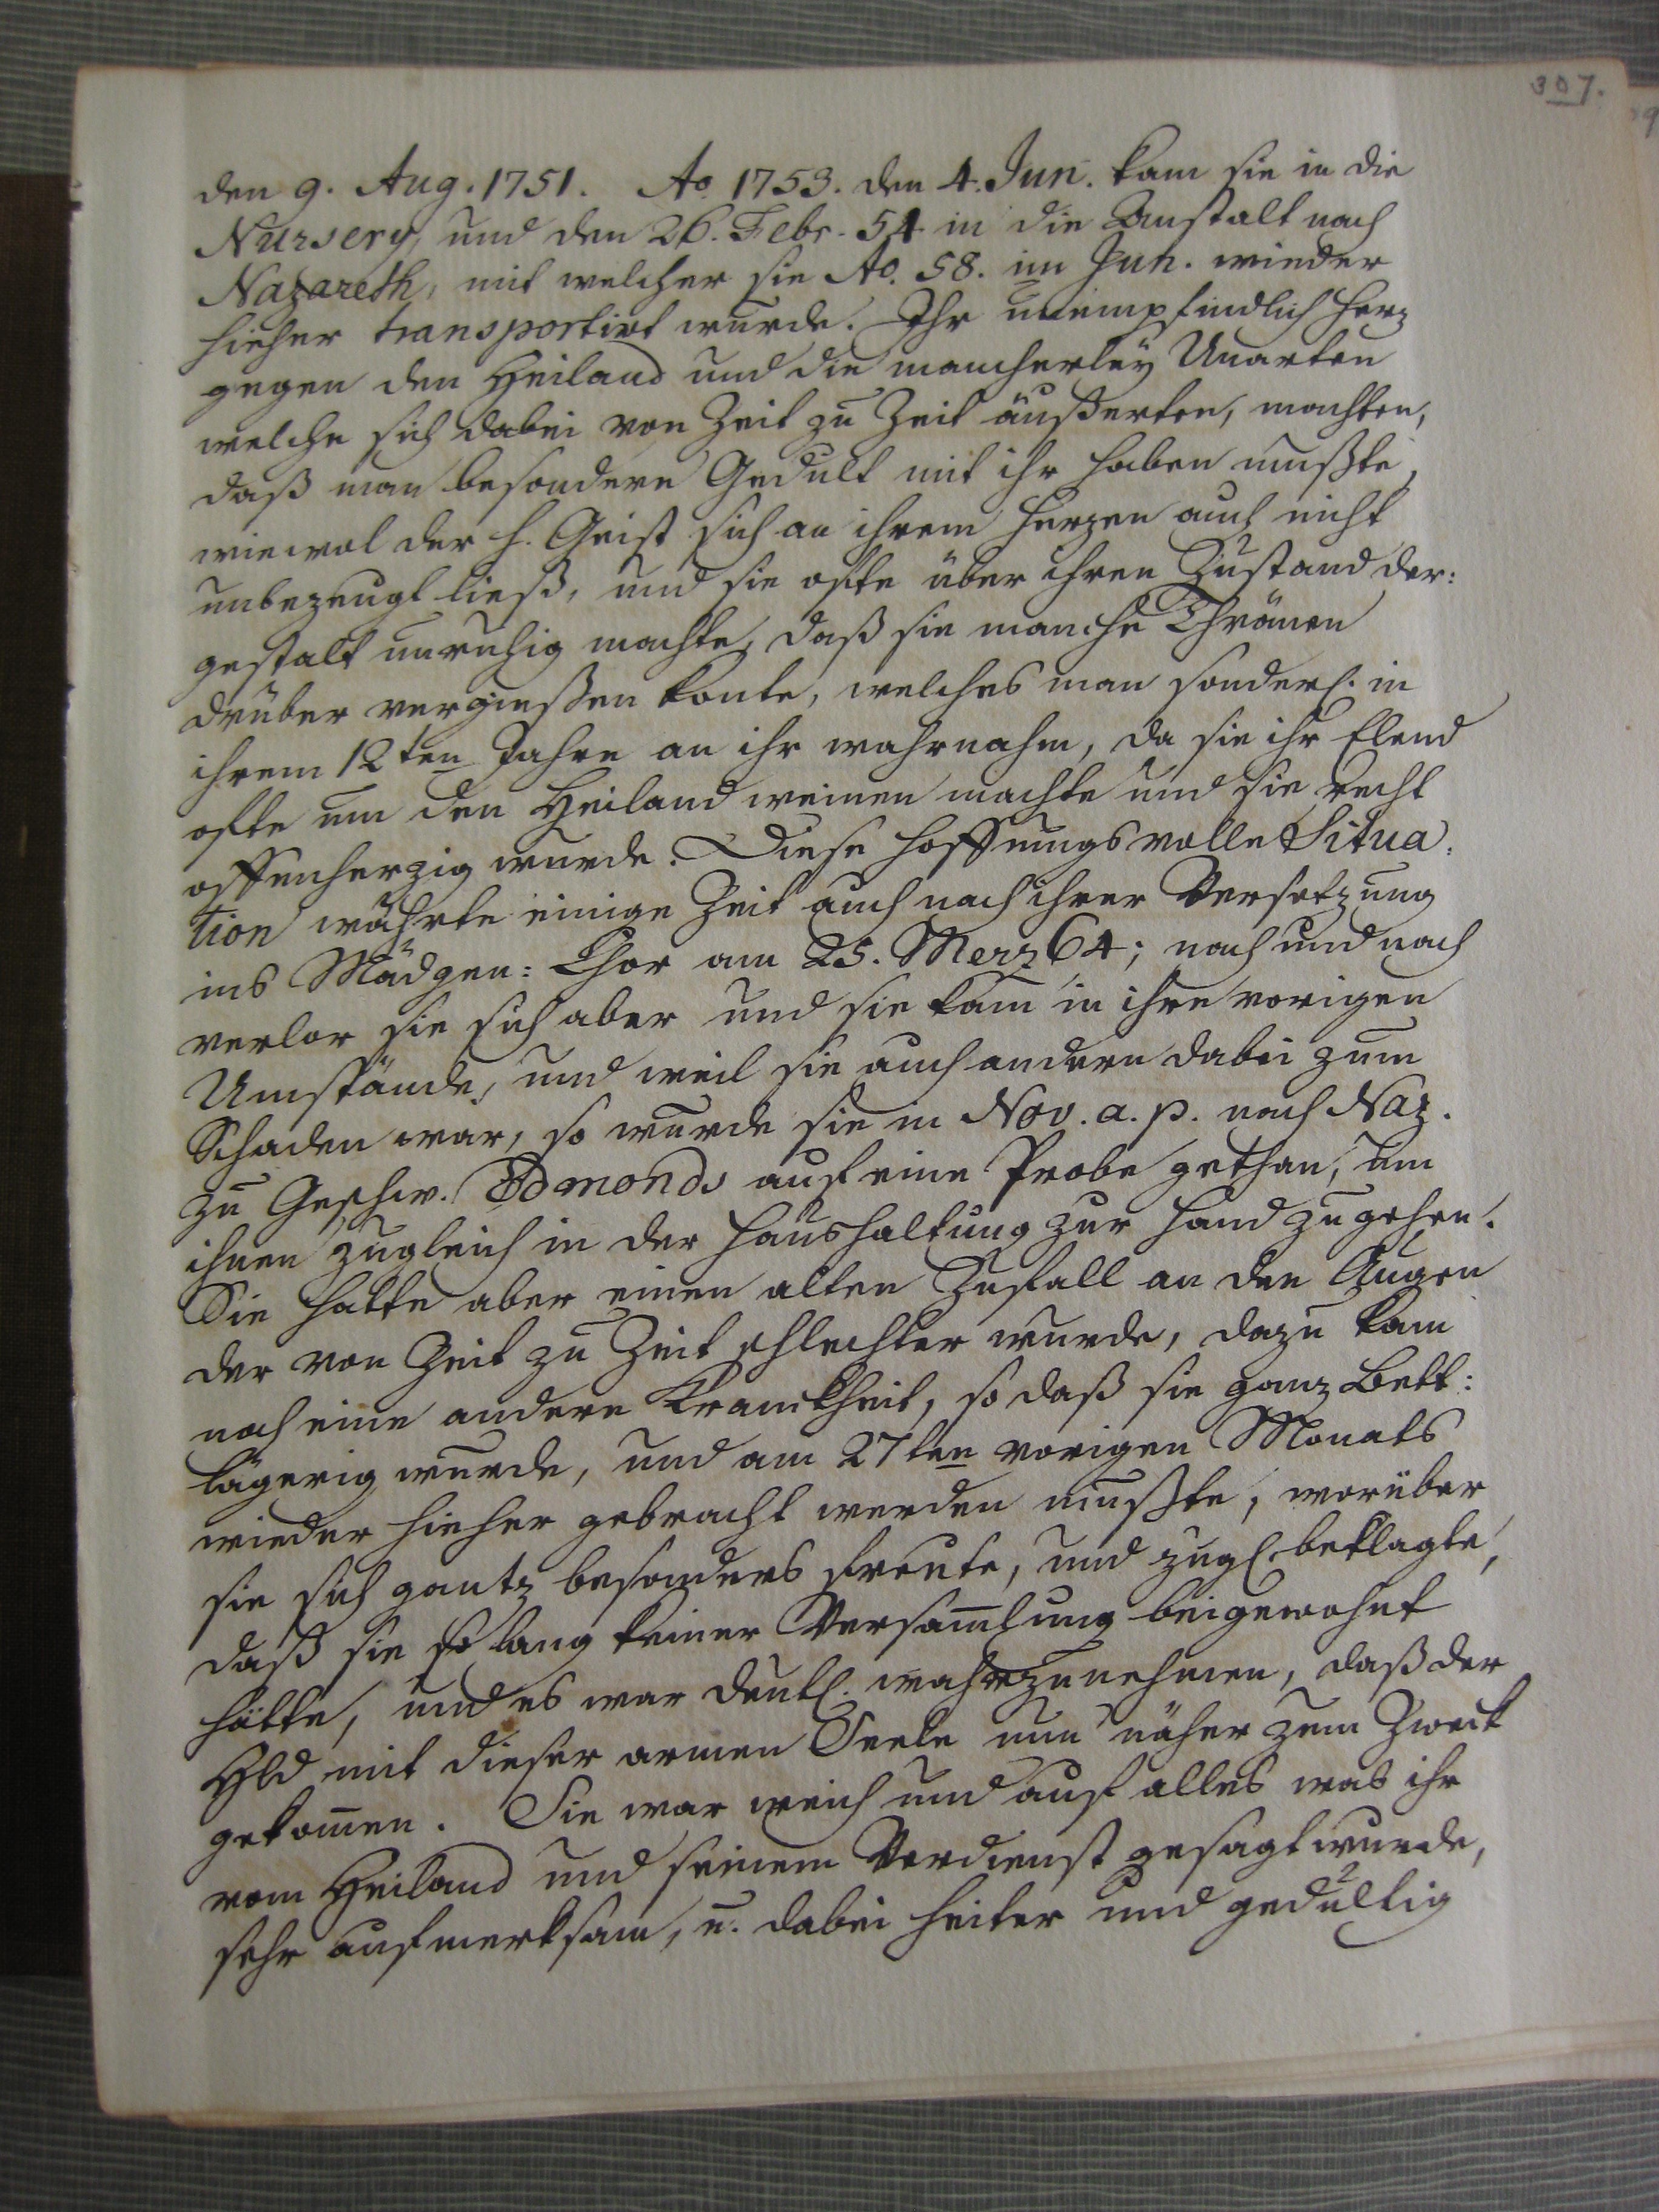 307.
den 9. Aug. 1751. Ao 1753. den 4. Jun. kam sie in die
Nursery, und den 26. Febr. 54 in die Anstalt nach
Nazareth, mit welcher sie Ao. 58. im Jun. wieder
hieher transportirt wurde. Ihr unempfindlich Herz
gegen den Heiland und die mancherley Unarten
welche sich dabei von Zeit zu Zeit äußerten, machten,
daß man besondere Gedult mit ihr haben mußte,
wiewol der h. Geist sich an ihrem Herzen auch nicht
unbezeugt ließ, und sie ofte über ihren Zustand der:
gestalt unruhig machte, daß sie manche Thränen
drüber vergießen konte, welches man sonderl. in
ihrem 12ten Jahre an ihr wahrnahm, da sie ihr Elend
ofte um den Heiland weinen machte und sie recht
offenherzig wurde. Diese hoffnungsvolle Situa:
tion währte einige Zeit auch nach ihrer Versetzung
ins Mädgen: Chor am 25. Merz 64; nach und nach
verlor sie sich aber und sie kam in ihre vorigen
Umstände, und weil sie auch andern dabei zum
Schaden war, so wurde sie in Nov. a. p. nach Naz.
zu Geschw. Edmonds auf eine Probe gethan, um
ihnen zugleich in der Haushaltung zur Hand zu gehen.
Sie hatte aber einen alten Zufall an den Augen
der von Zeit zu Zeit schlechter wurde, dazu kam
noch eine andere Kranckheit, so daß sie ganz Bett:
lägerig wurde, und am 27ten vorigen Monats
wieder hieher gebracht werden mußte, worüber
sie sich gantz besonders freute, und zugl. beklagte,
daß sie so lang keiner Versam̅lung beigewohnt
hätte, und es war deutl. wahrzunehmen, daß der
Hld mit dieser armen Seele nun näher zum Zweck
gekom̅en. Sie war weich und auf alles was ihr
vom Heiland und seinem Verdienst gesagt wurde,
sehr aufmerksam, u. dabei heiter und gedultig